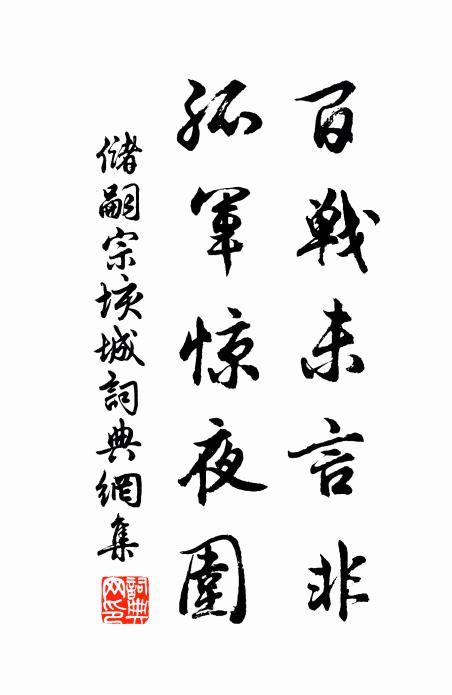 百戦未言非
孤軍惊夜圍
儲嗣宗垓城詞典網集
詞典
网印